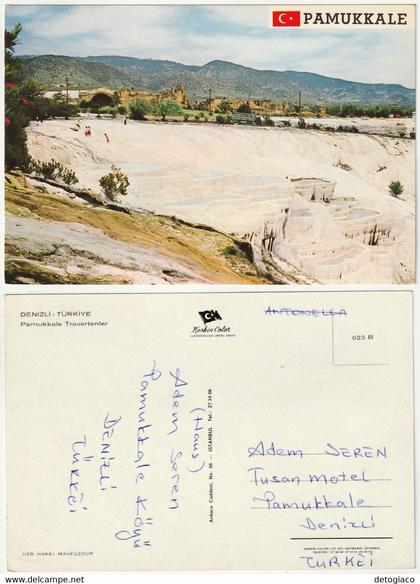 PAMUKKALE
DENIZLI - TÜRKIYE
Pamukkale Travertenler
Keskin Color
ANTONELLA
623 B
Adem Seren
(Haus)
Pamukkale Köyü
DENIZLI
TÜRKEI
Ankara Caddesi, No. 98 - ISTANBUL Tel.: 27 14 06
Adem SEREN
Tusan Motel
Pamukkale
Denizli
TURKEI
HER HAKKI MAHFUZDUR
www.delcampe.net
detogiaco